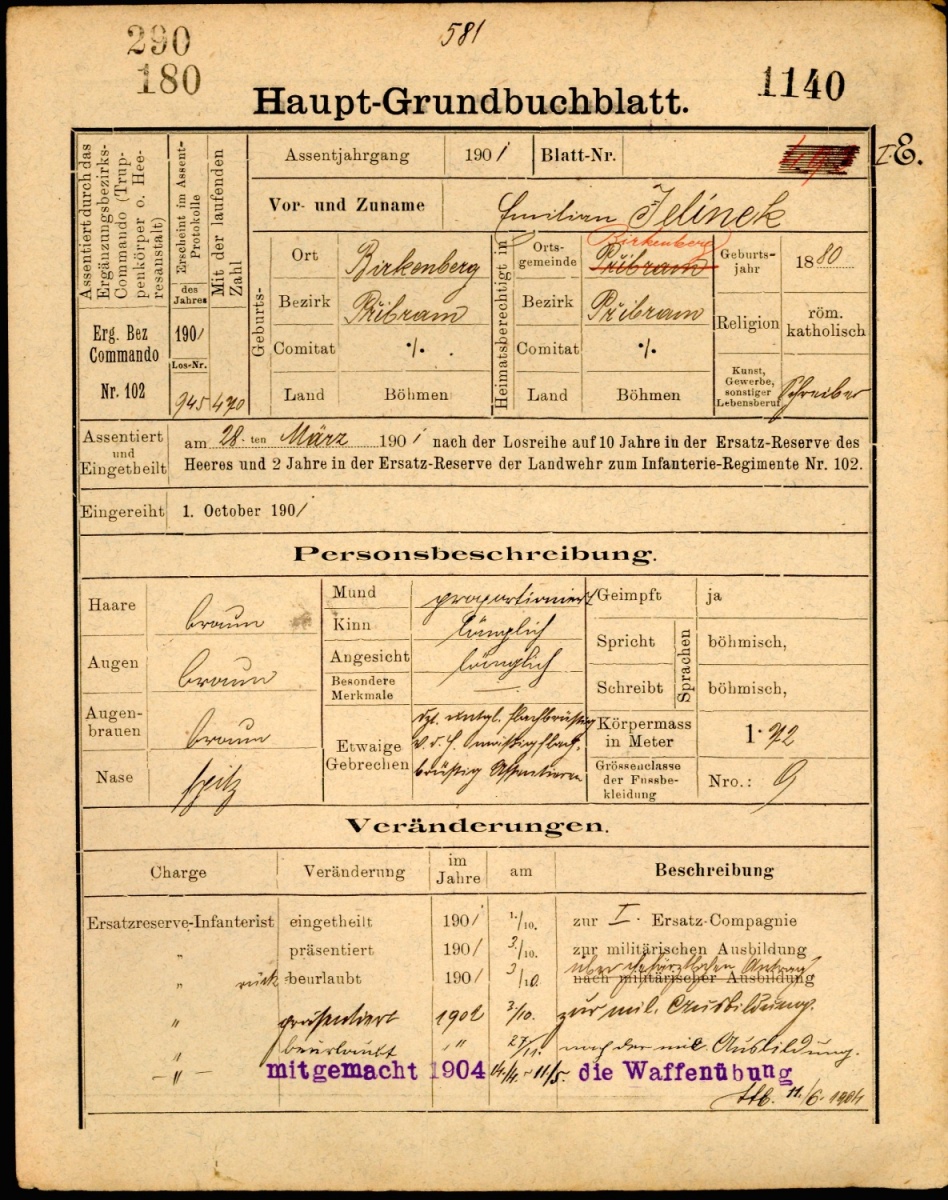 290
581
180
1140
Haupt-Grundbuchblatt.
Assentiert durch das Ergänzungsbezirks-Commando (Truppenkörper o. Heeresanstalt)
Erscheint im Assent-Protokolle
des Jahres
Mit der laufenden Zahl
Erg. Bez Commando Nr. 102
1901
Los-Nr.
945
470
Assentjahrgang 1901 Blatt-Nr.
I. E.
Vor- und Zuname Emilian Jelínek
Geburts-
Ort Birkenberg
Bezirk Přibram
Comitat ·/.
Land Böhmen
Heimatsberechtigt in
Ortsgemeinde Přibram Birkenberg
Bezirk Přibram
Comitat ·/.
Land Böhmen
Geburtsjahr 1880
Religion röm. katholisch
Kunst, Gewerbe, sonstiger Lebensberuf Schreiber
Assentiert und Eingetheilt
am 28. ten März 1901 nach der Losreihe auf 10 Jahre in der Ersatz-Reserve des
Heeres und 2 Jahre in der Ersatz-Reserve der Landwehr zum Infanterie-Regimente Nr. 102.
Eingereiht 1. October 1901
Personsbeschreibung.
Haare braun
Augen braun
Augenbrauen braun
Nase spitz
Mund proportioniert
Kinn länglich
Angesicht länglich
Besondere Merkmale —
Etwaige Gebrechen
flachbrüstig
Geimpft ja
Spricht böhmisch,
Schreibt böhmisch,
Sprachen
Körpermass in Meter 1·72
Grössenclasse der Fussbekleidung Nro.: 9
Veränderungen.
Charge Veränderung im Jahre am Beschreibung
Ersatzreserve-Infanterist eingetheilt 1901 1./10. zur I. Ersatz-Compagnie
„ präsentiert 1901 3./10. zur militärischen Ausbildung
über chefärztlichen Antrag
„ rück beurlaubt 1901 3/10. nach militärischer Ausbildung
„ präsentiert 1902 3./10. zur mil. Ausbildung.
„ beurlaubt „ 27/11. nach der mil. Ausbildung.
— „ — mitgemacht 1904 14./4.-11/5. die Waffenübung
11./6. 1904